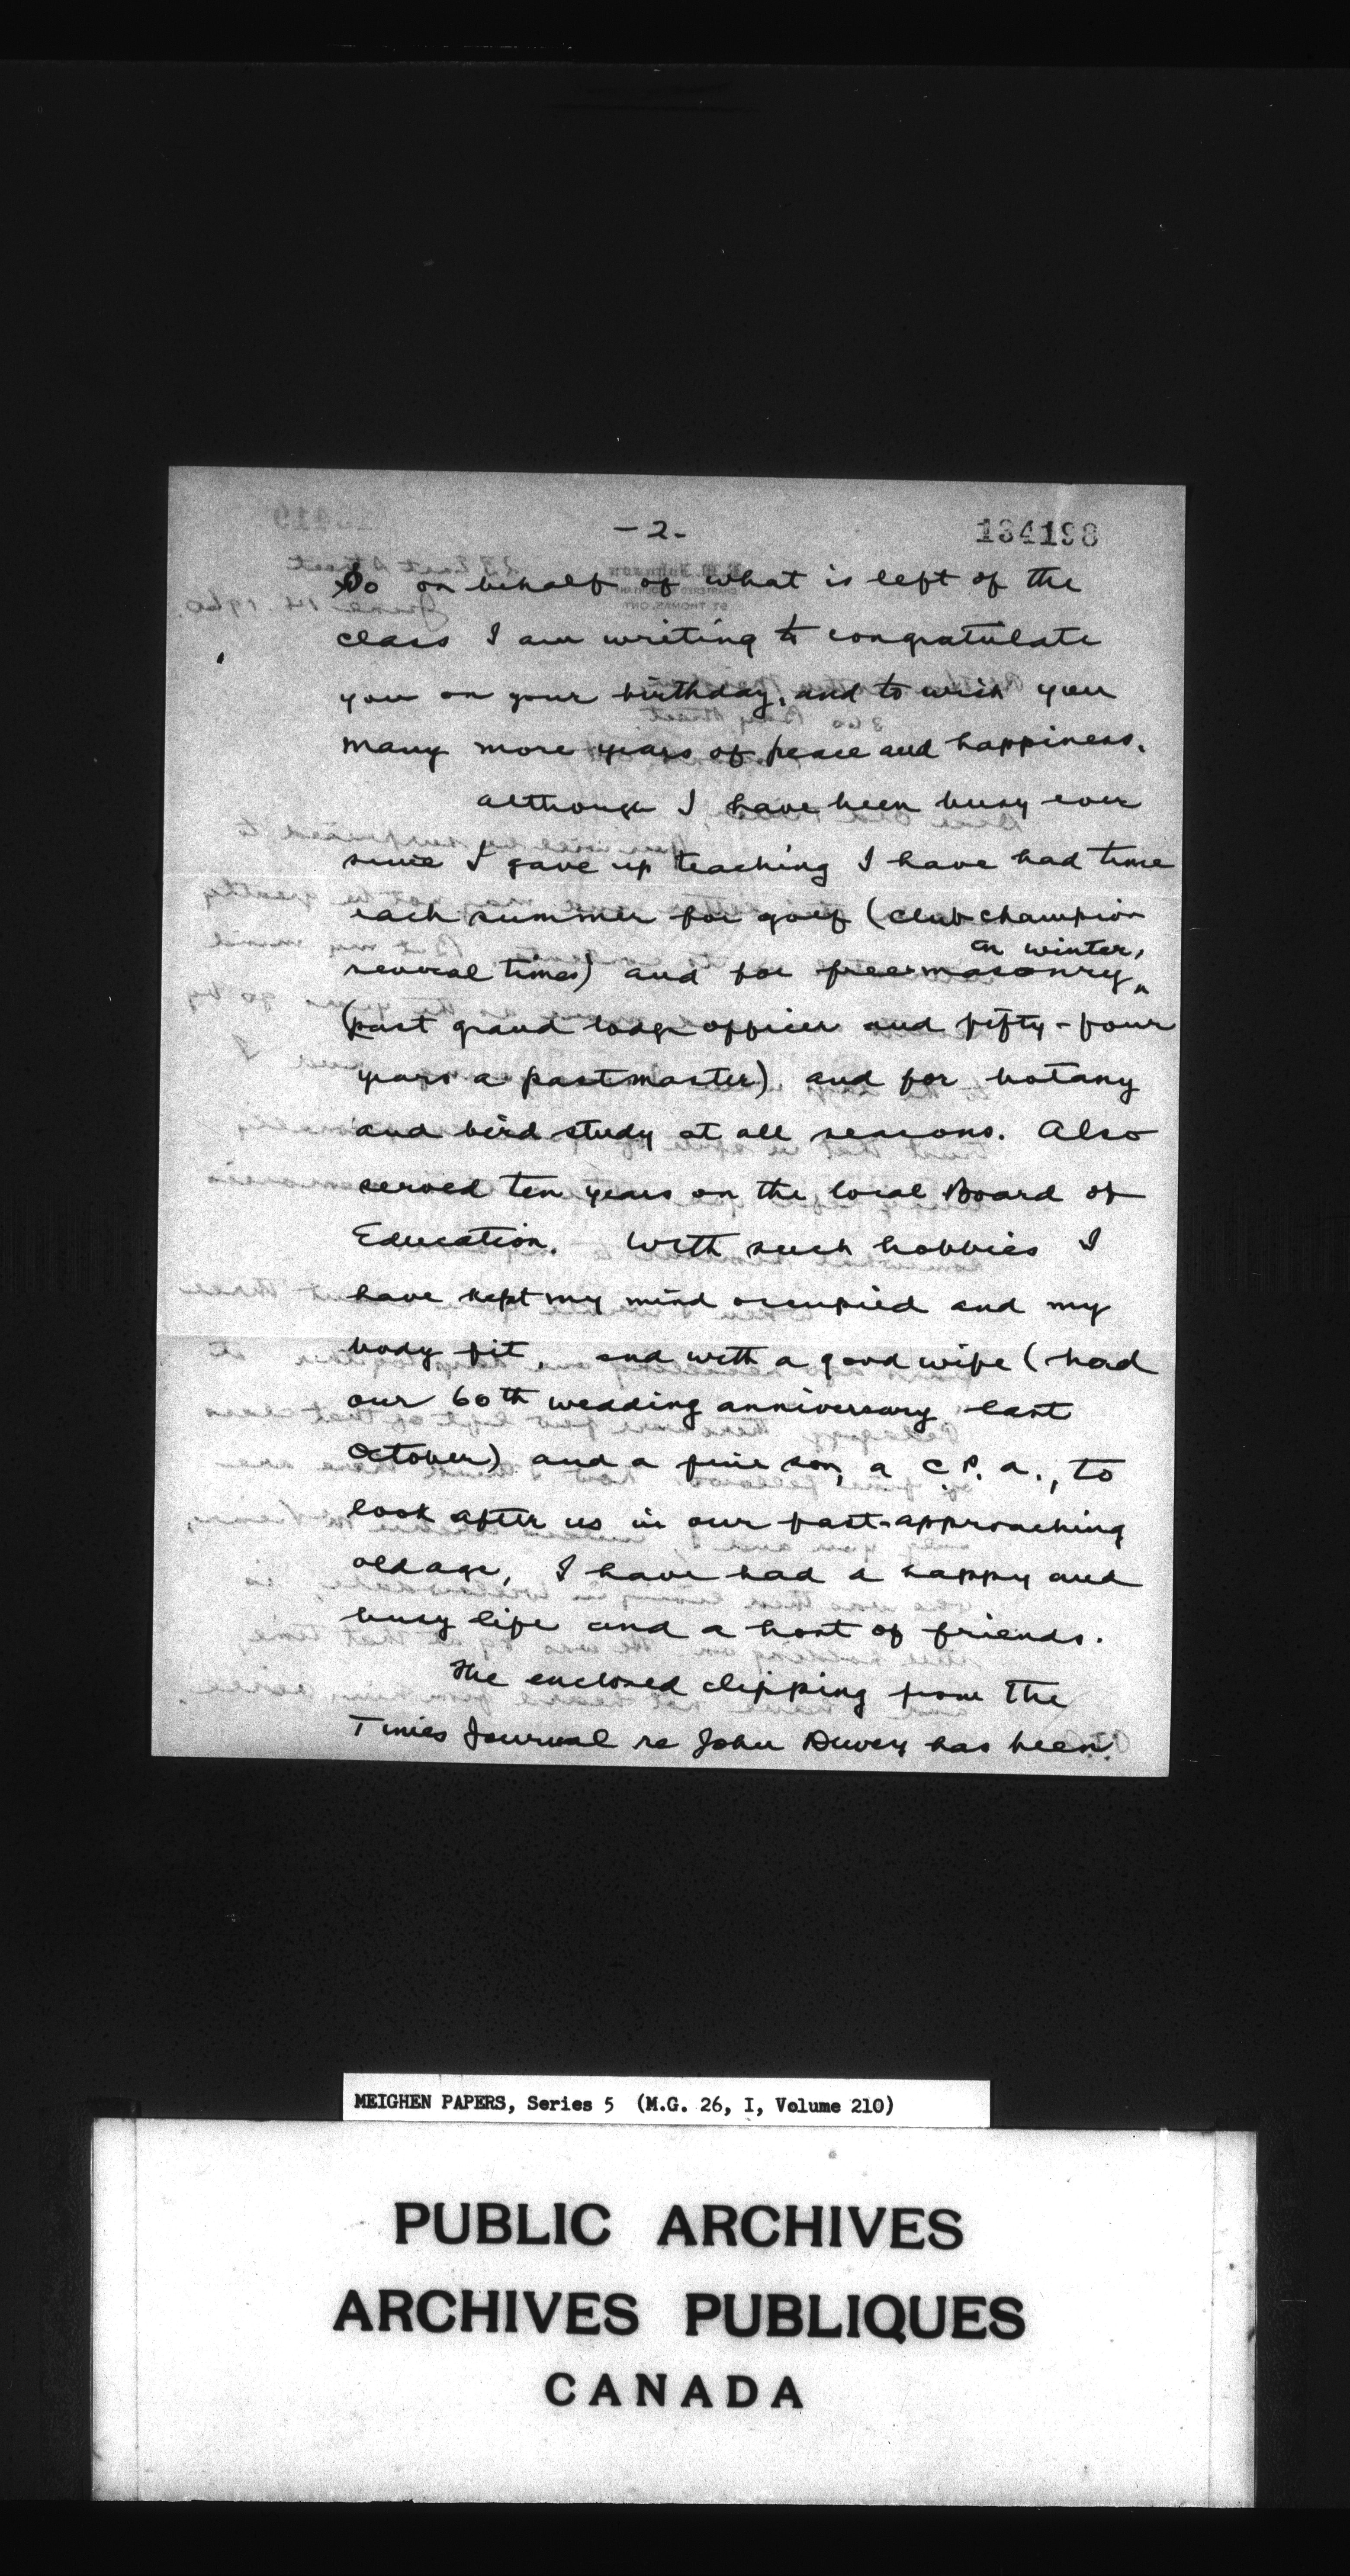 -2-
134198
So on behalf of what is left of the
class I am writing to congratulate
you on your birthday, and to wish you
many more years of peace and happiness.
Although I have been busy ever
since I gave up teaching I have had time
each summer for golf (club champion
in winter,
several times) and for freemasonry
(past grand lodge officer and fifty-four
years a pastmaster) and for botany
and bird study at all seasons. Also
served ten years on the local Board of
Education. With such hobbies I
have kept my mind occupied and my
body fit, and with a good wife (had
our 60th wedding anniversary last
October) and a fine son, a C.P.A., to
look after us in our fast-approaching
old age, I have had a happy and
busy life and a host of friends.
The enclosed clipping from the
Times Journal re John Dewey has been
MEIGHEN PAPERS, Series 5 (M.G. 26, I, Volume 210)
PUBLIC ARCHIVES
ARCHIVES PUBLIQUES
CANADA